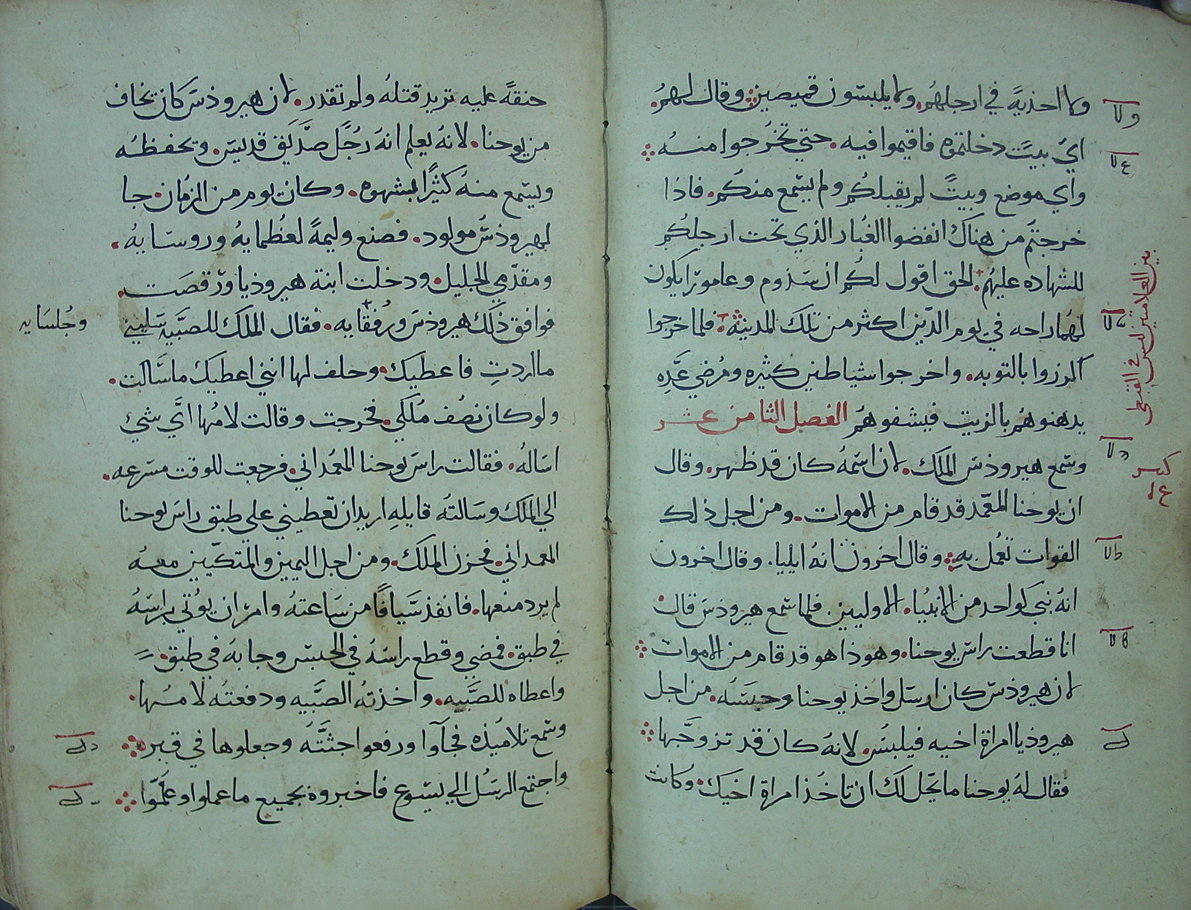 ولا احذيةً في ارجلهم. ولا يلبسون قميصين. وقال لهم.
اي بيت دخلتموه فاقيموا فيه. حتي تخرجوا منه
واي موضع وبيتً لم يقبلكم ولم يسمع منكم. فاذا
خرجتم من هناك انفضوا الغبار الذي تحت ارجلكم
للشهاده عليهم الحق اقول لكم ان سذوم وعامورا يكون
لهما راحه في يوم الدين اكثر من تلك المدينه. فلما خرجوا
اكرزوا بالتوبه. واخرجوا شياطين كثيره ومرضي عده
يدهنوهم بالزيت فيشفوهم الفصل الثامن عشر
وسمع هيروذس الملك. لان اسمه كان قد ظهر. وقال
ان يوحنا المعمد قد قام من الاموات. ومن اجل ذلك
القوات تعمل به. وقال اخرون انه ايليا. وقال اخرون
انه نبي كواحد من الانبيا. الاوليين. فلما سمع هيروذس قال.
انا قطعت راس يوحنا. وهوذا هو قد قام من الاموات
لان هيروذس كان ارسل واخذ يوحنا وحبسه. من اجل
هيروذيا امراة اخيه فيلبس. لانه كان قد تزوجها
فقال له يوحنا ما يحل لك ان تاخذ امراة اخيك. وكانت
بين العلامتين ليس في القبطي
حنقةً عليه تريد قتله ولم تقدر. لان هيروذس كان يخاف
من يوحنا. لانه يعلم انه رجل صديق قديس. ويحفظه
ويسمع منه كثيرًا بشهوه. وكان يوم من الزمان. جا
لهيروذس مولود. فصنع وليمةً لعظمايه وروسايه.
ومقدمي الجليل. ودخلت ابنة هيروذيا ورقصت.
فوافق ذلك هيروذس ورفقايه. فقال الملك للصبية سليني
وجلسايه
ما اردتِ فاعطيك. وحلف لها انني اعطيك ما سالت.
ولو كان نصف ملكي. فخرجت وقالت لامها اي شي
اساله. فقالت راس يوحنا المعمداني. فرجعت للوقت مسرعه.
الي الملك وسالته قايله اريد ان تعطيني علي طبق راس يوحنا
المعمداني. فحزن الملك. ومن اجل اليمين والمتكيين معه
لم يرد منعها. فانفذ سيافًا من ساعته وامر ان يوتي براسه
في طبق. فمضي وقطع راسه في الحبس وجا به في طبق.
واعطاه للصبيه. واخذته الصبيه ودفعته لامها.
وسمع تلاميذه فجاوا ورفعوا جثته وجعلوها في قبر
واجتمع الرسل الي يسوع فاخبروه بجميع ما عملوا وعلموا